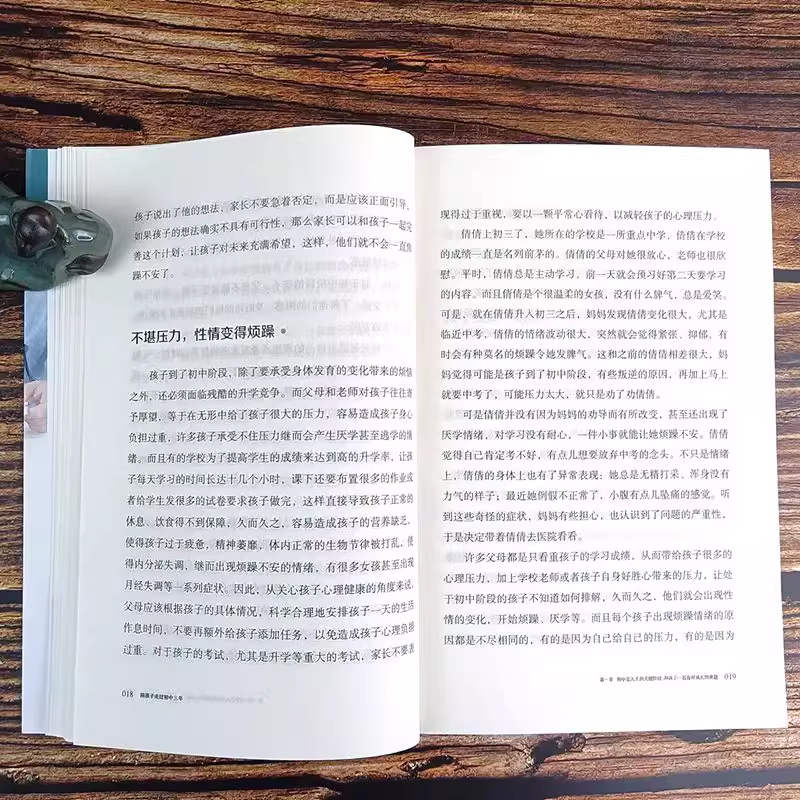 孩子说出了他的想法，家长不要急着否定，而是应该正面引导，
如果孩子的想法确实不具有可行性，那么家长可以和孩子一起完
善这个计划，让孩子对未来充满希望，这样，他们就不会一直焦
躁不安了。
不堪压力，性情变得烦躁
孩子到了初中阶段，除了要承受身体发育的变化带来的烦恼
之外，还必须面临残酷的升学竞争。而父母和老师对孩子往往寄
予厚望，等于在无形中给了孩子很大的压力，容易造成孩子身心
负担过重，许多孩子承受不住压力继而会产生厌学甚至逃学的情
绪。而且有的学校为了提高学生的成绩来达到高的升学率，让孩
子每天学习的时间长达十几个小时，课下还要布置很多的作业或
者给学生发很多的试卷要求孩子做完，这样直接导致孩子正常的
休息、饮食得不到保障。久而久之，容易造成孩子的营养缺乏，
使得孩子过于疲惫，精神萎靡，体内正常的生物节律被打乱，使
得内分泌失调，继而出现烦躁不安的情绪，有很多女孩甚至出现
月经失调等一系列症状。因此，从关心孩子心理健康的角度来说，
父母应该根据孩子的具体情况，科学合理地安排孩子一天的生活
作息时间，不要再额外给孩子添加任务，以免造成孩子心理负担
过重。对于孩子的考试，尤其是升学等重大的考试，家长不要表
018 陪孩子走过初中三年
现得过于重视，要以一颗平常心看待，以减轻孩子的心理压力。
倩倩上初三了，她所在的学校是一所重点中学，倩倩在学校
的成绩一直是名列前茅的。倩倩的父母对她很放心，老师也很欣
慰。平时，倩倩总是主动学习，前一天就会预习好第二天要学习
的内容。而且倩倩是个很温柔的女孩，没有什么脾气，总是爱笑。
可是，就在倩倩升入初三之后，妈妈发现倩倩变化很大，尤其是
临近中考，倩倩的情绪波动很大，突然就会觉得紧张、抑郁，有
时会有种莫名的烦躁令她发脾气。这和之前的倩倩相差很大，妈
妈觉得可能是孩子到了初中阶段，有些叛逆的原因，再加上马上
就要中考了，可能压力太大，就只是劝了劝倩倩。
可是倩倩并没有因为妈妈的劝导而有所改变，甚至还出现了
厌学情绪，对学习没有耐心，一件小事就能让她烦躁不安。倩倩
觉得自己肯定考不好，有点儿想要放弃中考的念头。不只是情绪
上，倩倩的身体上也有了异常表现：她总是无精打采、浑身没有
力气的样子；最近她例假不正常了，小腹有点儿坠痛的感觉。听
到这些奇怪的症状，妈妈有些担心，也认识到了问题的严重性，
于是决定带着倩倩去医院看看。
许多父母都是只看重孩子的学习成绩，从而带给孩子很多的
心理压力，加上学校老师或者孩子自身好胜心带来的压力，让处
于初中阶段的孩子不知道如何排解，久而久之，他们就会出现性
情的变化，开始烦躁、厌学等。而且每个孩子出现烦躁情绪的原
因都是不尽相同的，有的是因为自己给自己的压力，有的是因为
第一章 初中是人生的关键阶段，和孩子一起面对成长的难题 019